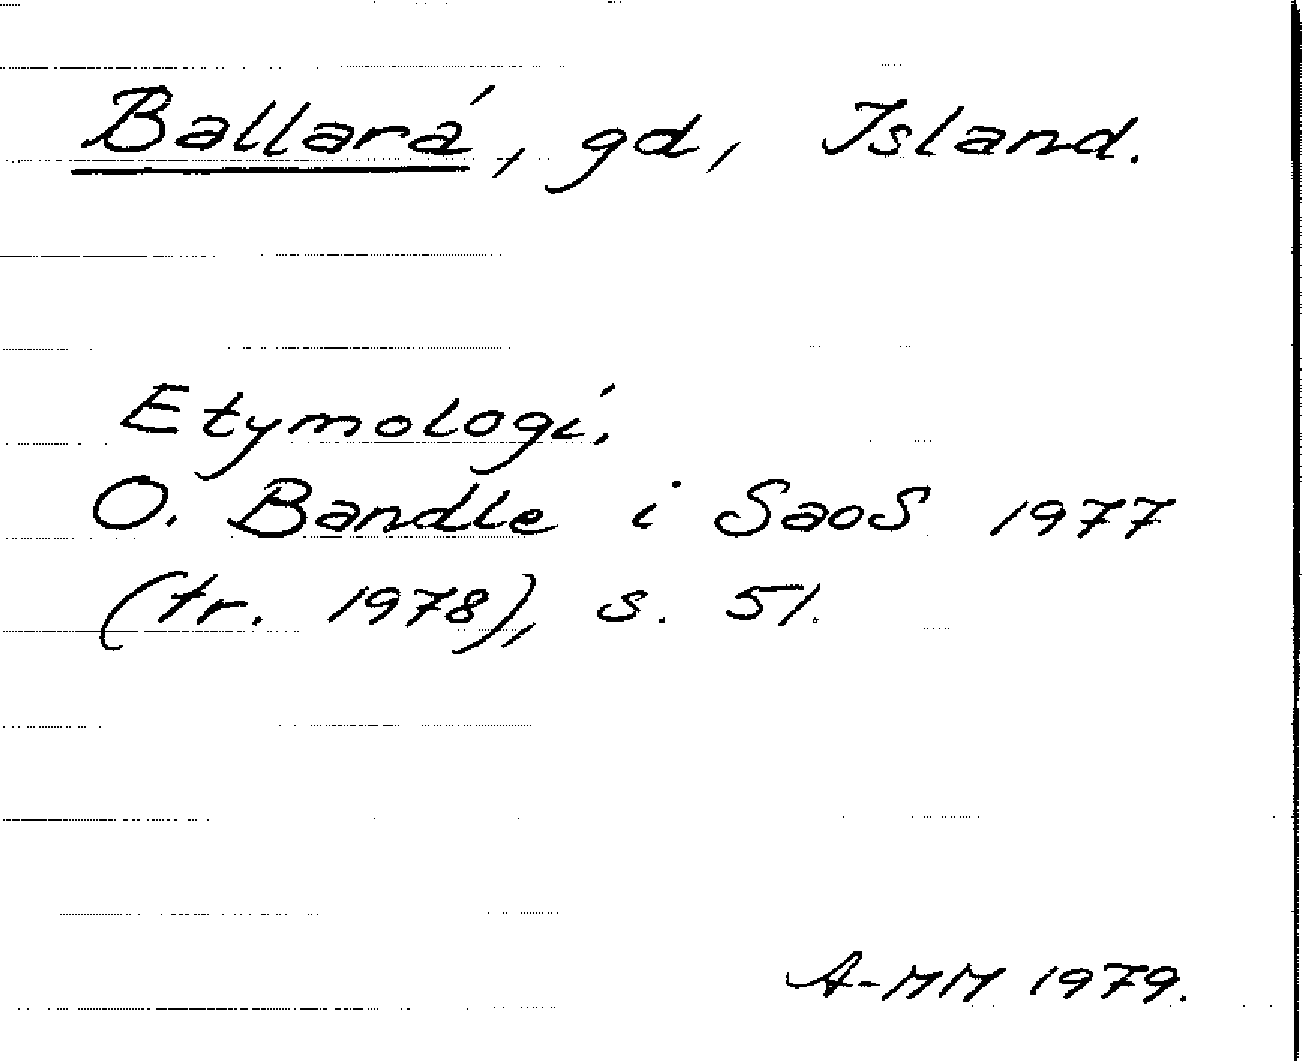 Ballará, gd, Island.
Etymologi,
O. Bandle i SaoS 1977
(tr. 1978), s. 51.
A-MM 1979.